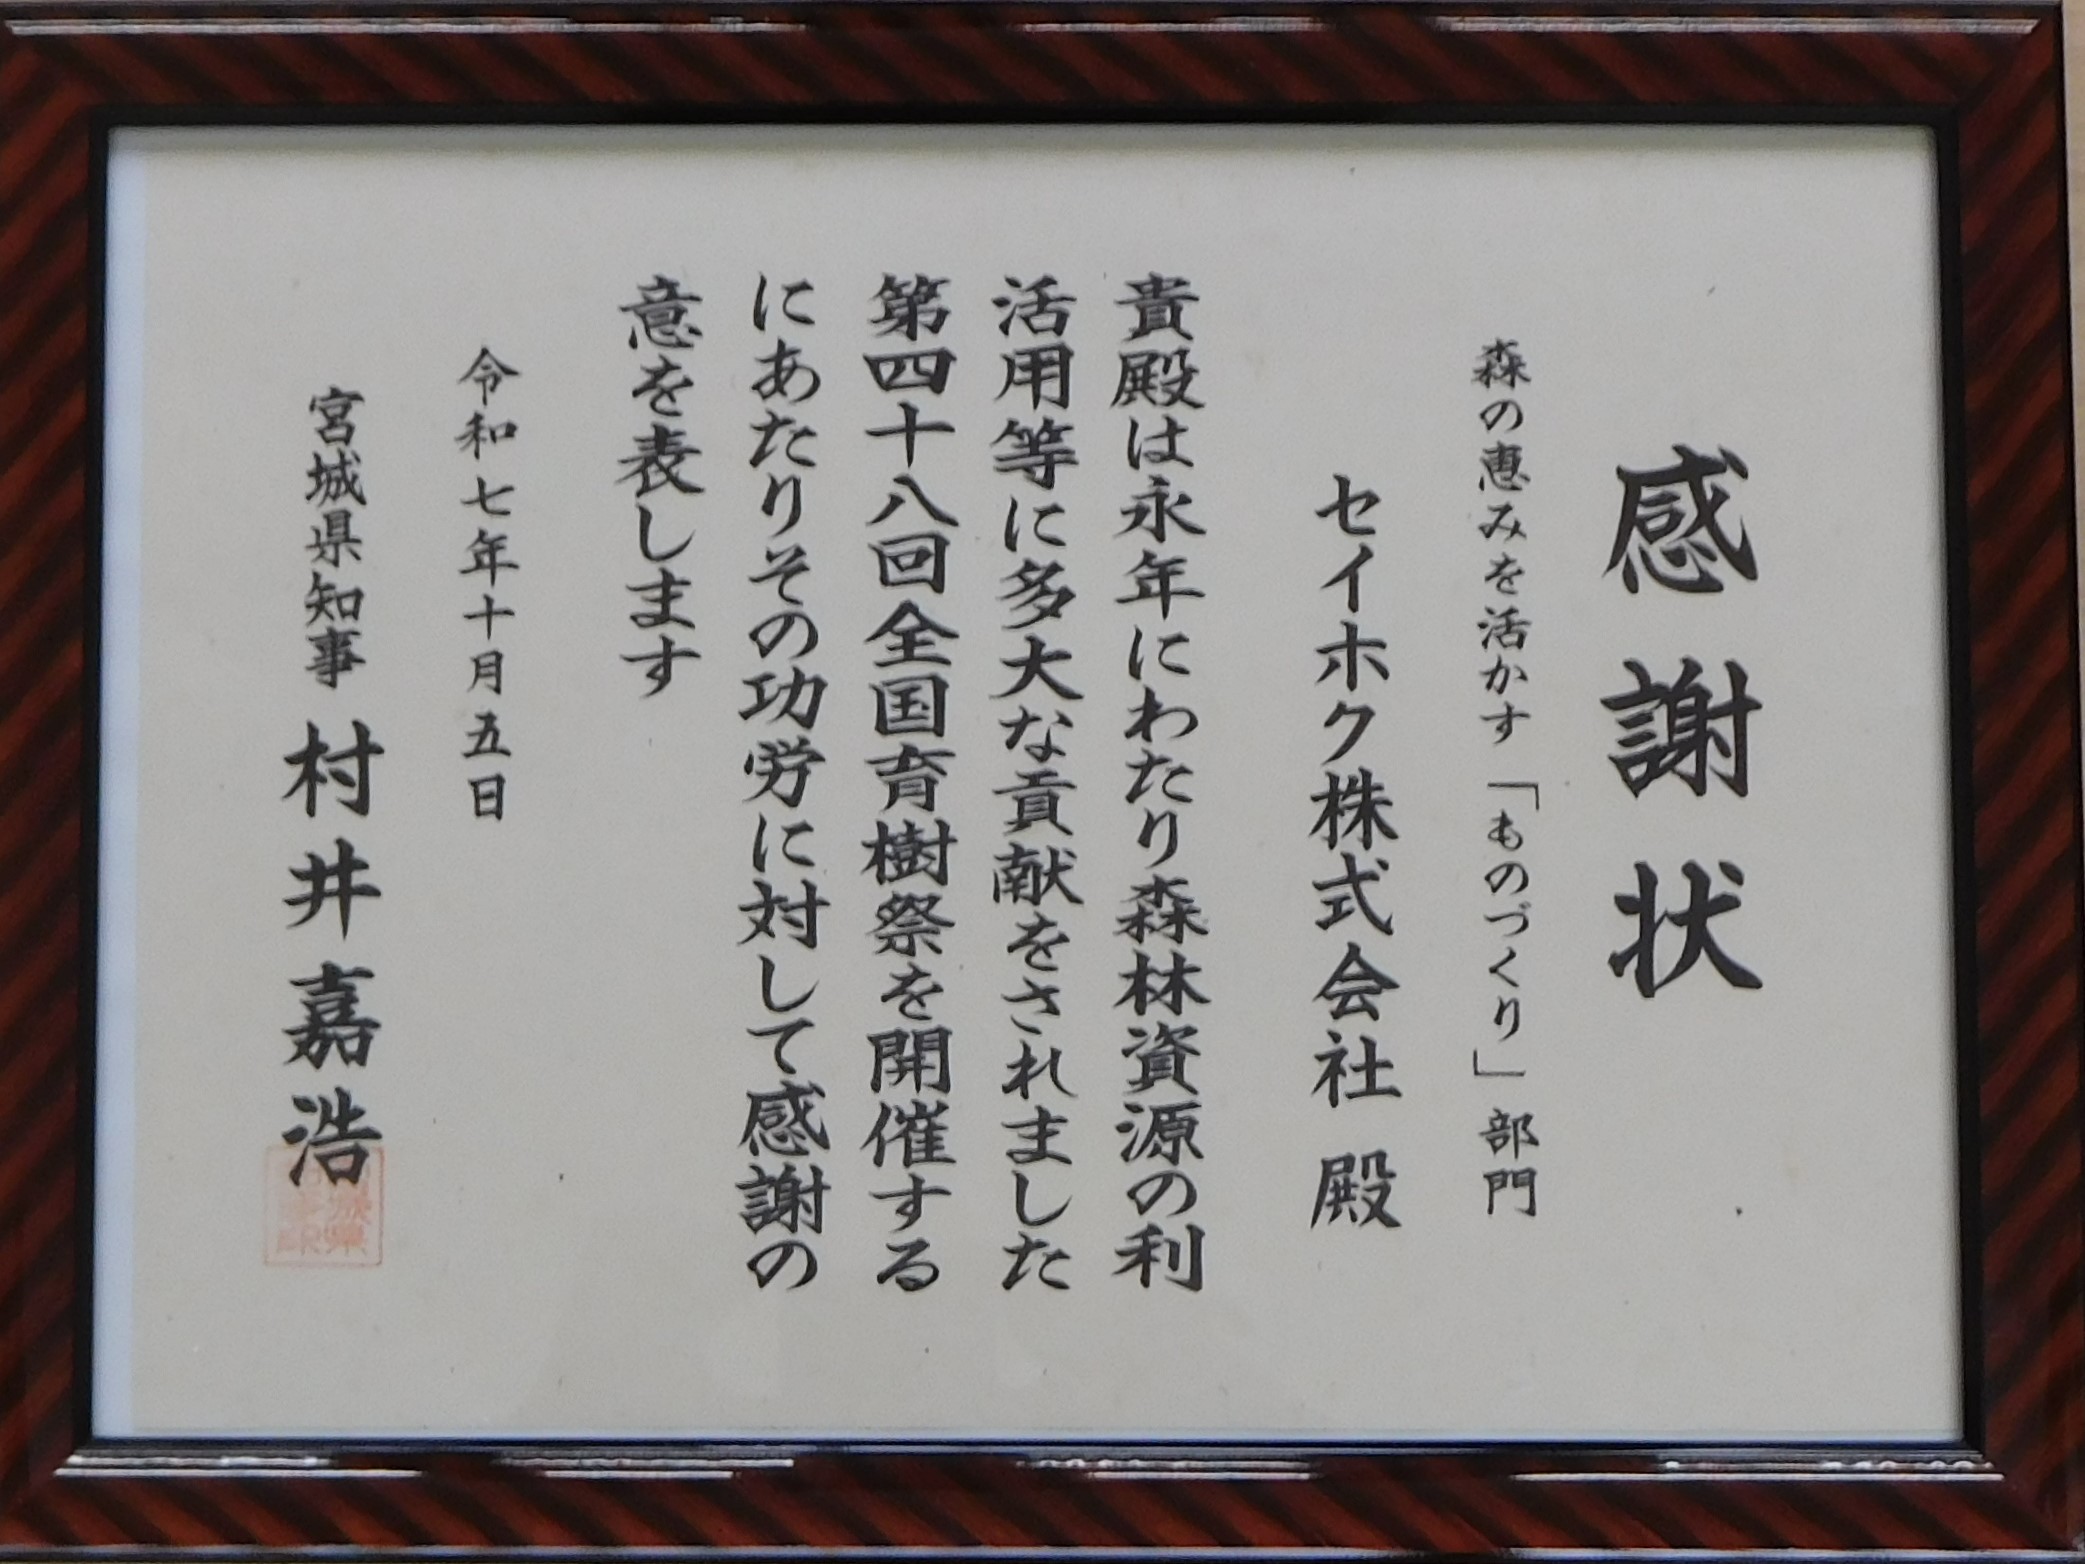 感謝状
森の恵みを活かす「ものづくり」部門
セイホク株式会社 殿
貴殿は永年にわたり森林資源の利
活用等に多大な貢献をされました
第四十八回全国育樹祭を開催する
にあたりその功労に対して感謝の
意を表します
令和七年十月五日
宮城県知事 村井嘉浩